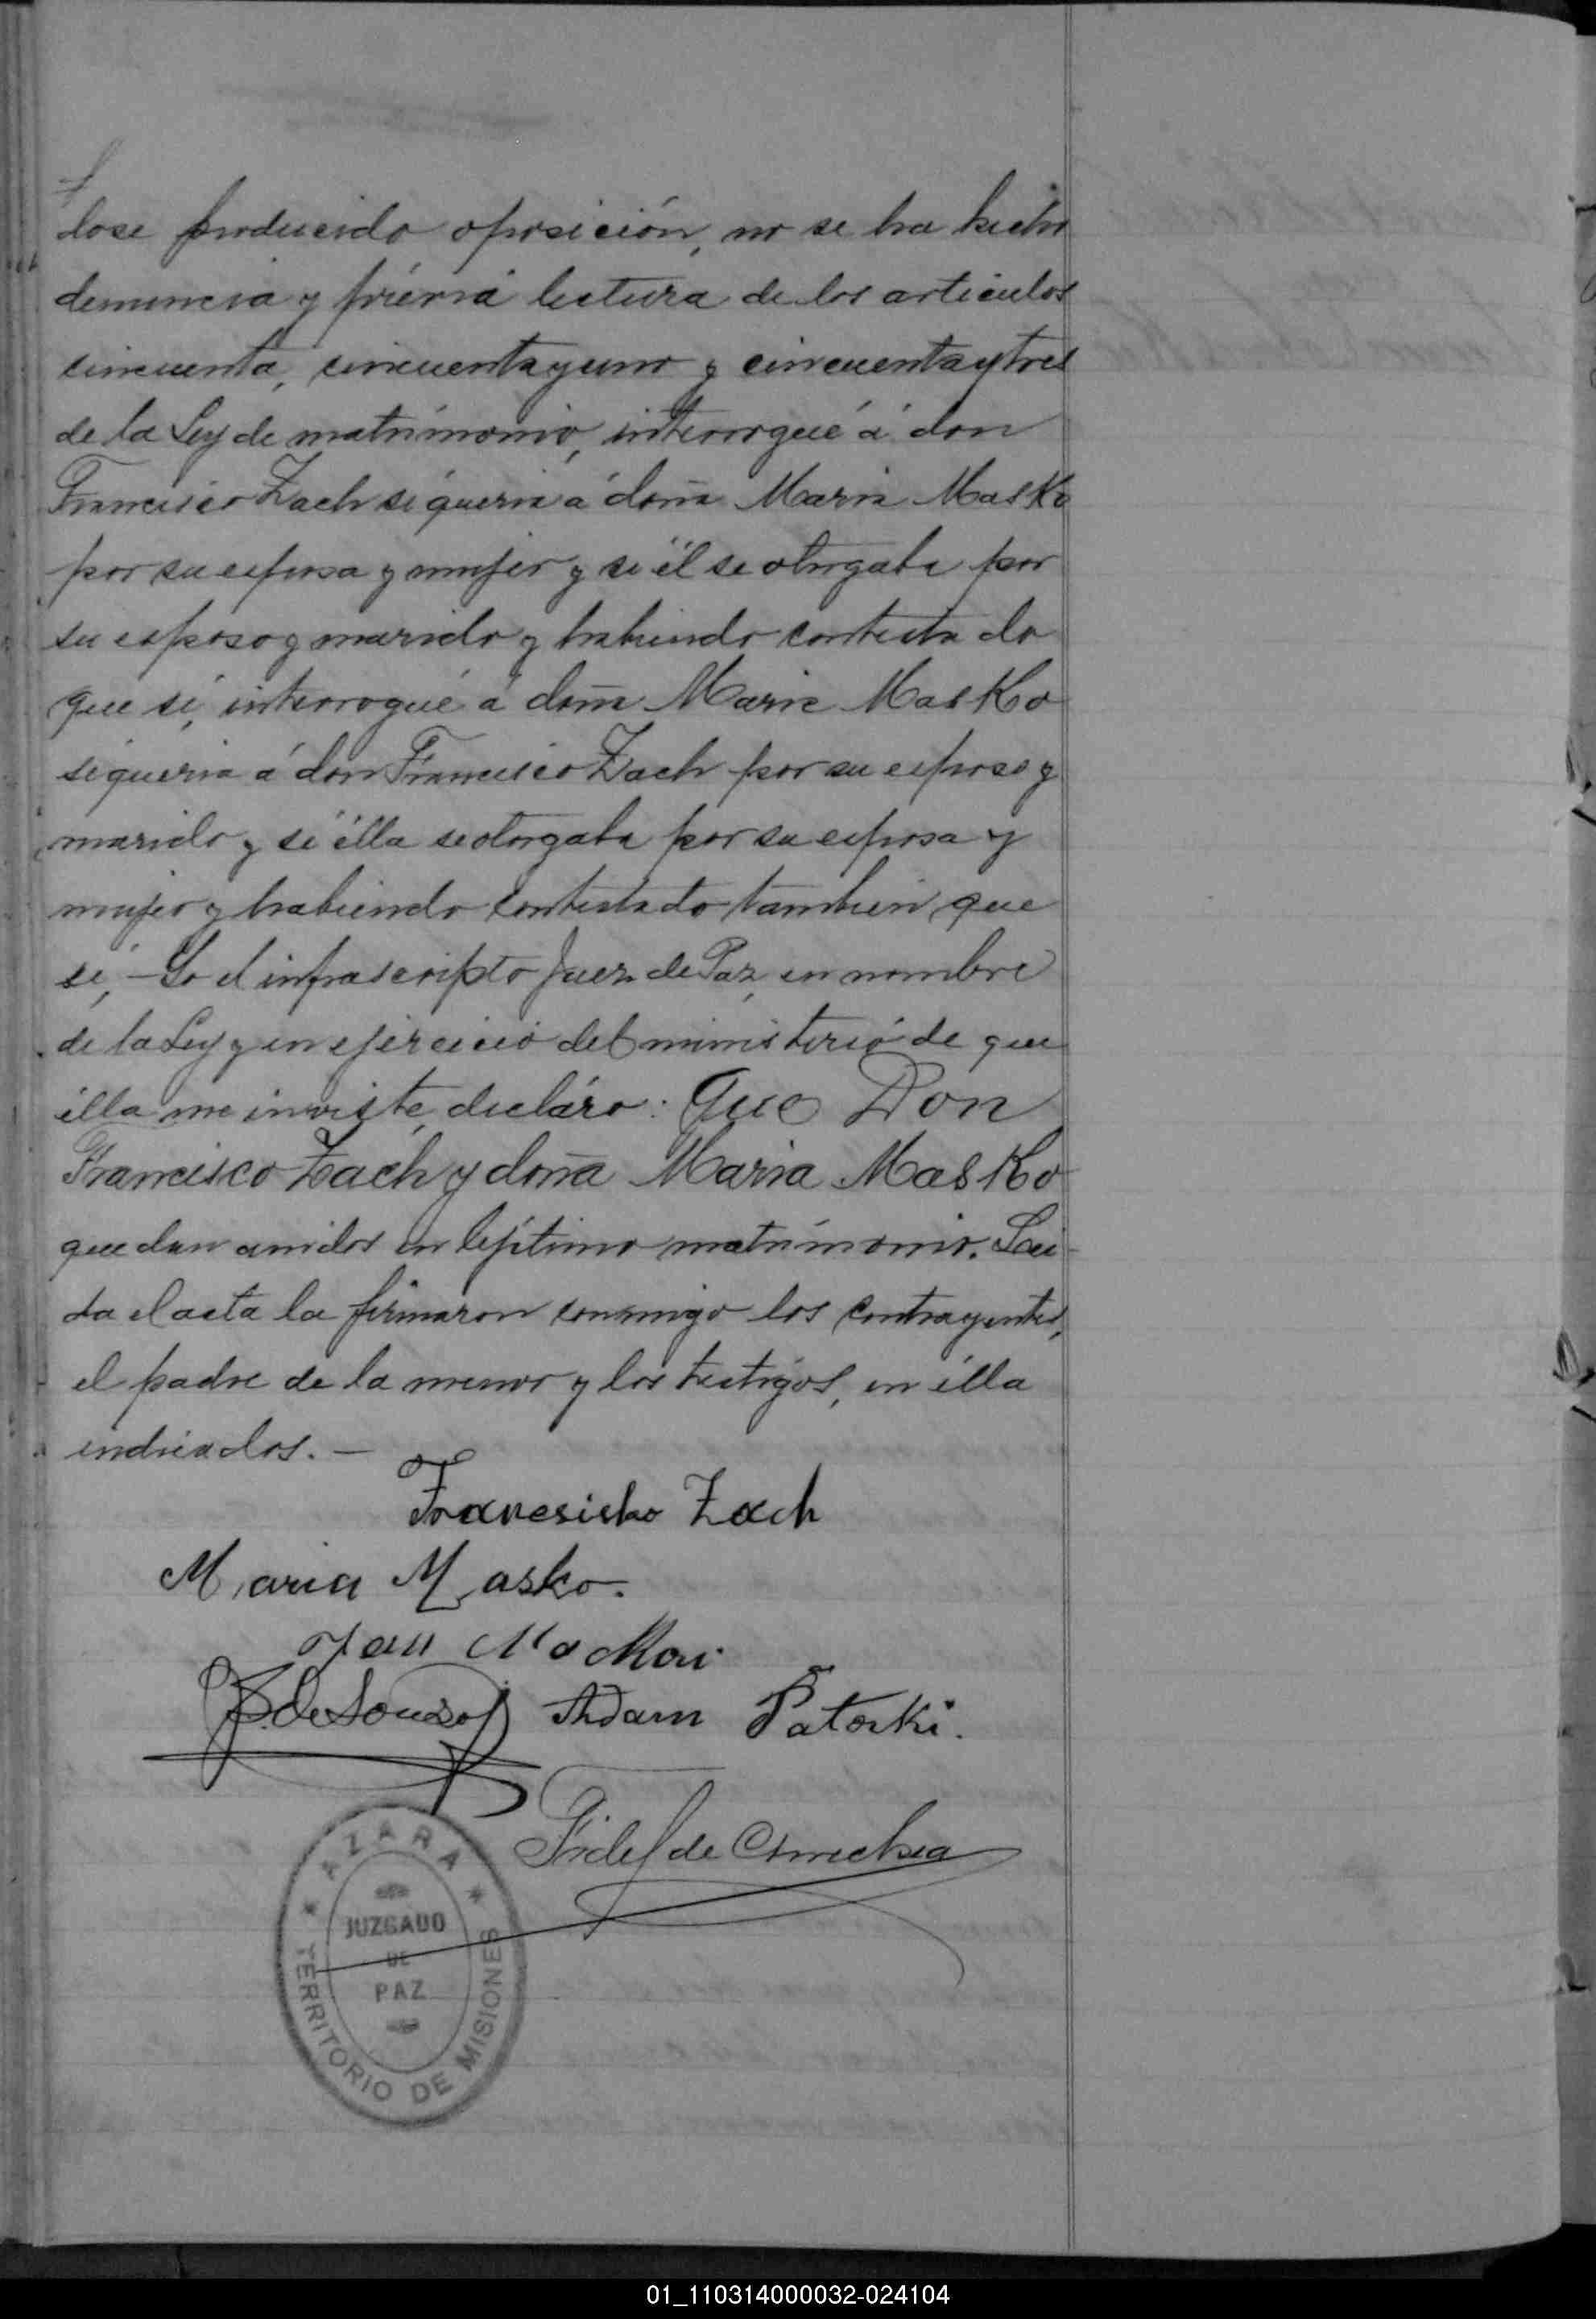 dose producido oposición, no se ha hecho
denuncia y prévia lectura de los articulos
cincuenta, cincuentayuno y cincuentaytres
de la Ley de matrimonio, interrogué á don
Francisco Zach si queria á doña Maria Masko
por su esposa y mujer y si él se otorgaba por
su esposo y marido y habiendo contesta do
que sí, interrogué á doña Maria Masko
si queria á don Francisco Zach por su esposo y
marido y si élla se otorgaba por su esposa y
mujer y habiendo contestado tambien que
sí, — Yo el infrascripto Juez de Paz, en nombre
de la Ley y en ejercicio del ministerio de que
élla me inviste, decláro: Que Don
Francisco Zach y doña Maria Masko
quedan unidos en lejítimo matrimonio. Lei-
da el acta la firmaron conmigo los contrayentes,
el padre de la menor y los testigos, en élla
indicados. —
Francisko Zach
Maria Masko.
Jan
de Souza Adam Patorki.
Fidel de
AZARA
JUZGADO
DE
PAZ
TERRITORIO DE MISIONES
01_110314000032-024104